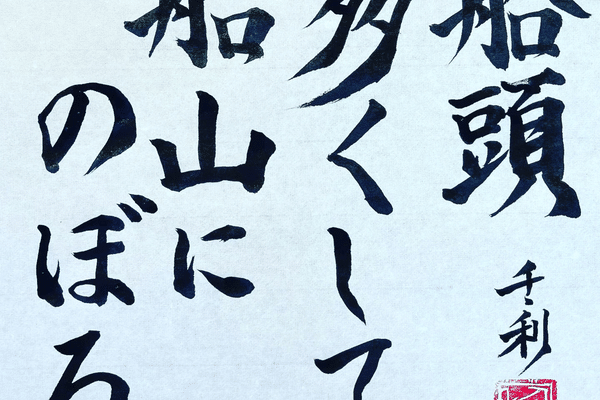 船頭
多くして
船山に
のぼ
千利